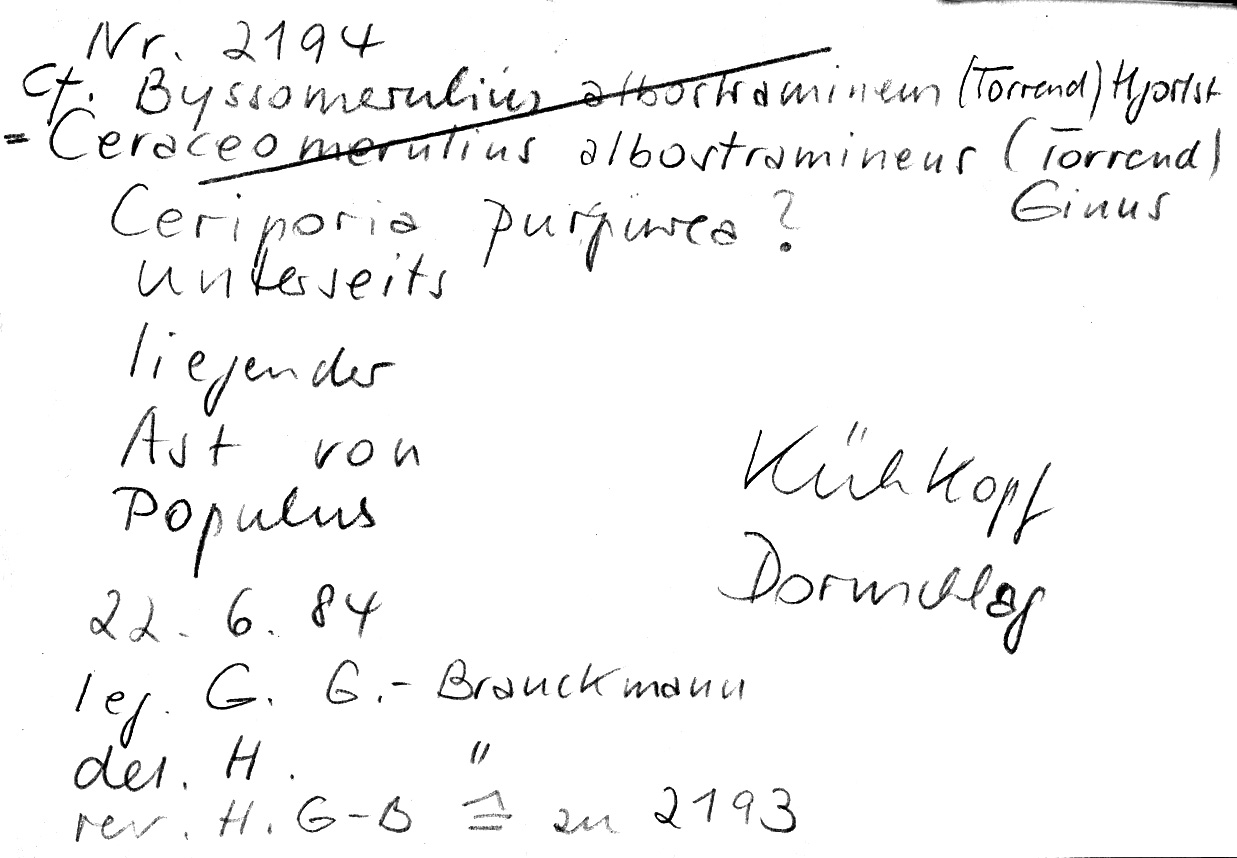 Nr. 2194
cf. Byssomerulius albostramineus (Torrend) Hjortst
= Ceraceomerulius albostramineus (Torrend)
Ginus
Ceriporia purpurea ?
unterseits
liegender
Ast von
Populus
Kühkopf
Dornschlag
22. 6. 84
leg. G. G.-Brauckmann
det. H. "
rev. H. G-B ≙ zu 2193